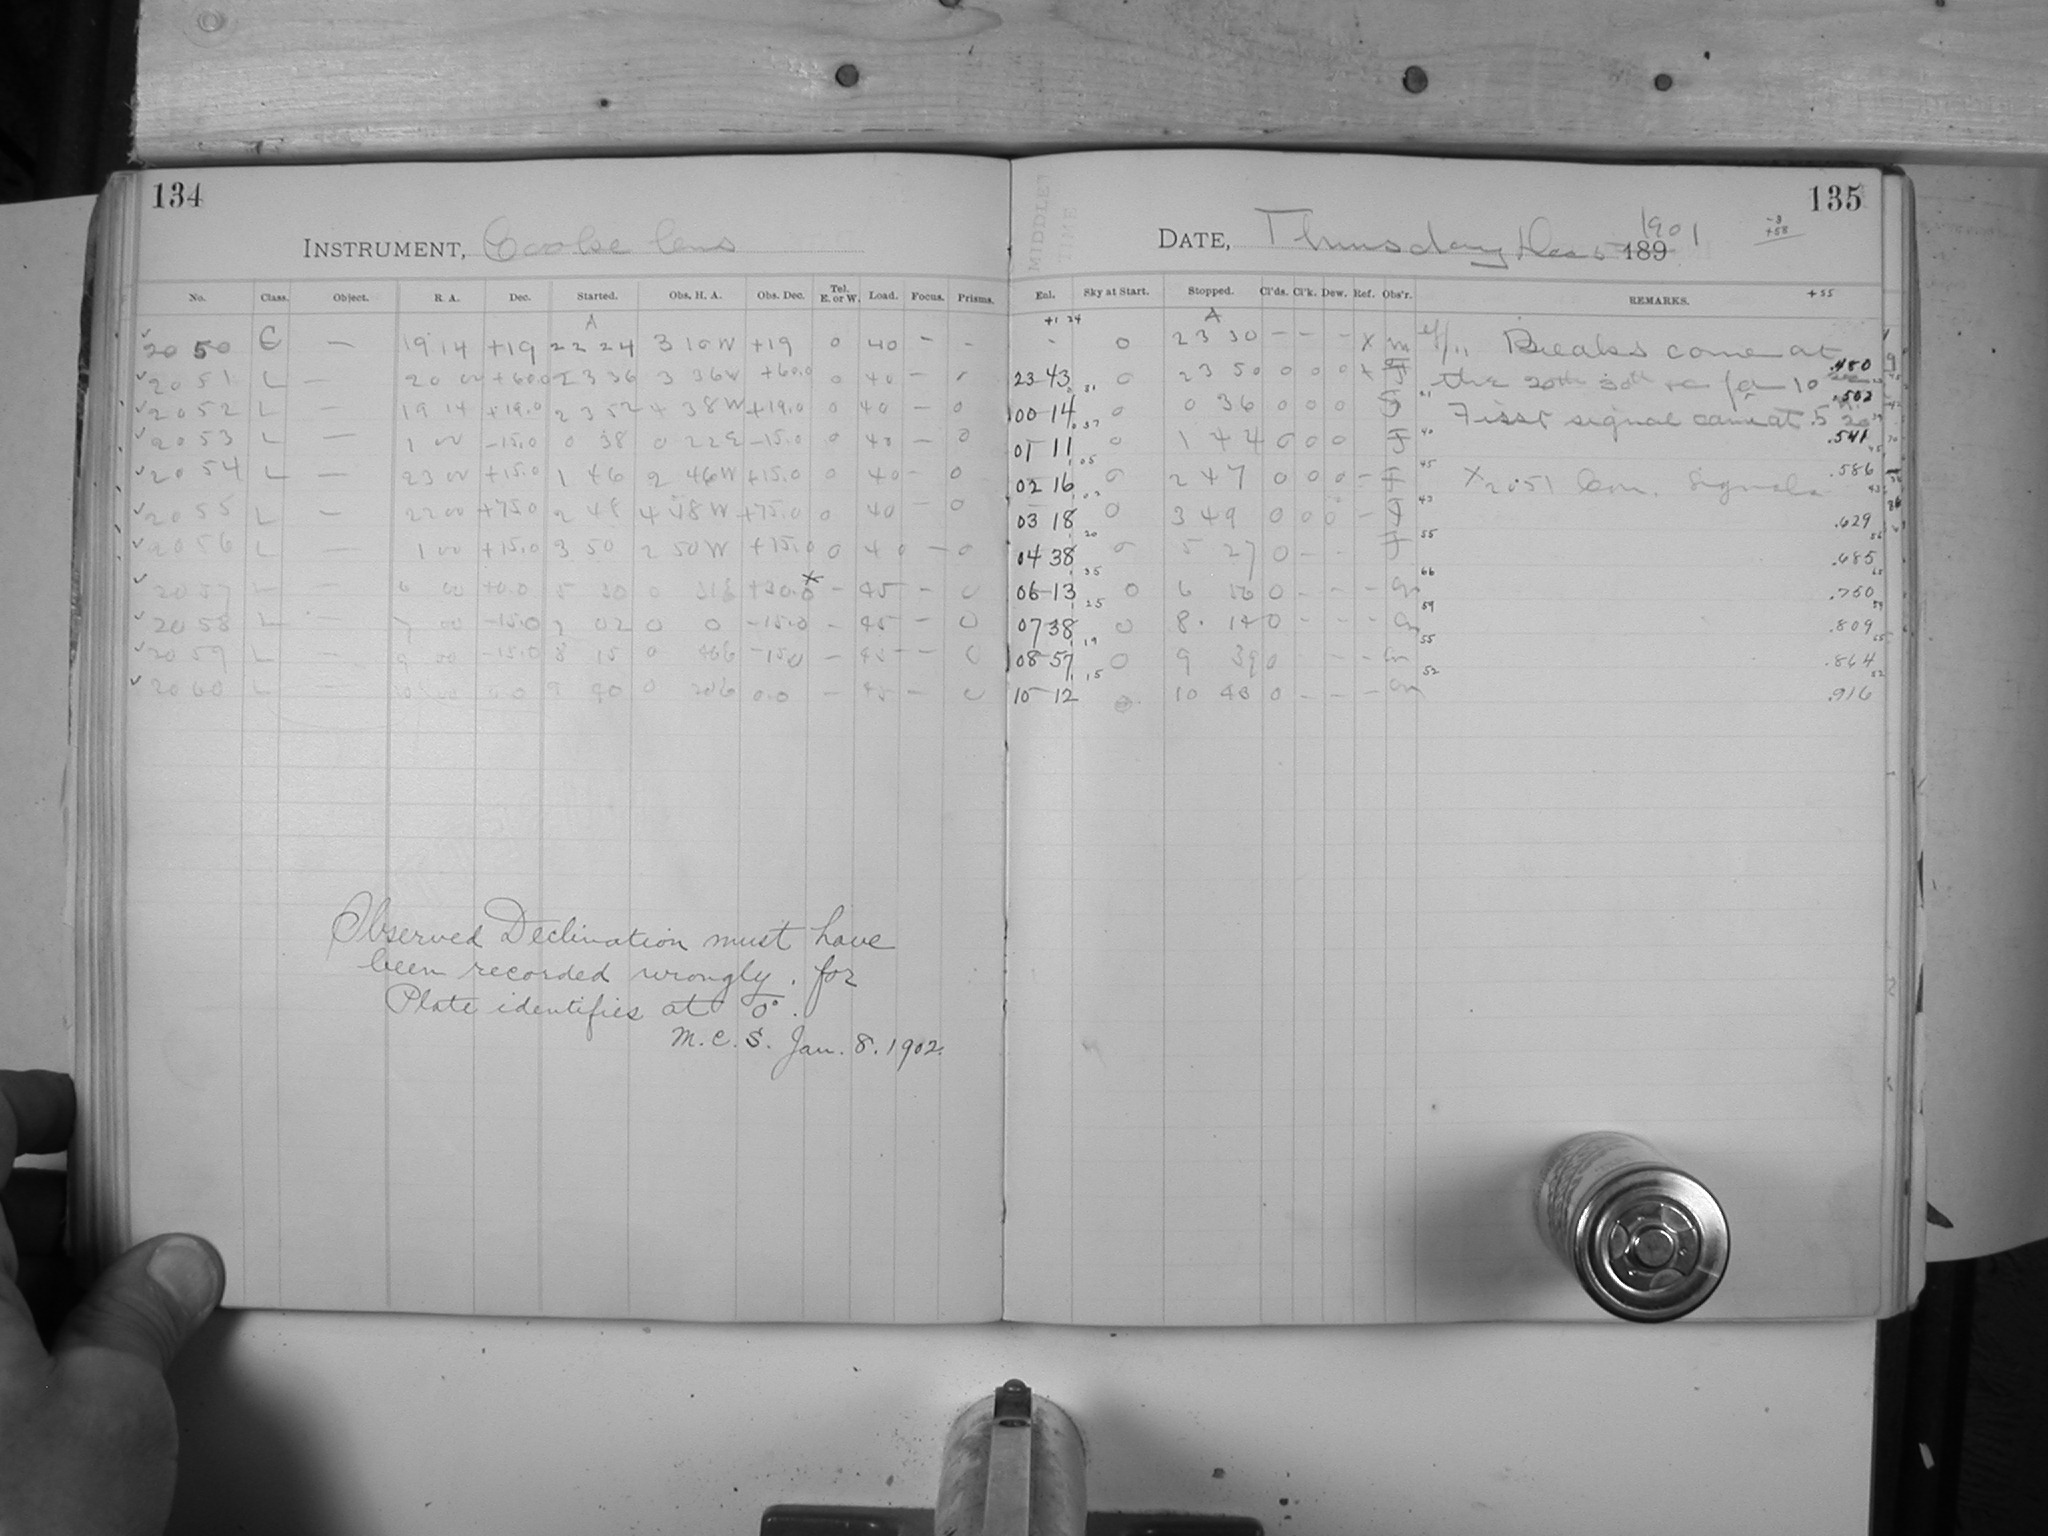 134
INSTRUMENT, Cooke lens
No. Class. Object. R. A. Dec. Started. Obs. H. A. Obs. Dec. Tel. E. or W. Load. Focus. Prisms.
A
2050 C — 19 14 +19 22 24 3 10 W +19 0 40 — -
2051 L — 20 00 +60.0 23 36 3 36 W +60.0 0 40 -
2052 L — 19 14 +19.0 23 52 4 38 W +19.0 0 40 — 0
2053 L — 1 00 -15.0 0 38 0 22 E -15.0 0 40 — 0
2054 L — 23 00 +15.0 1 46 2 46 W +15.0 0 40 — 0
2055 L — 22 00 +75.0 2 48 4 48 W +75.0 0 40 — 0
2056 L — 1 00 +15.0 3 50 2 50 W +15.0 0 40 — 0
2057 L — 6 00 +0.0 5 30 0 31 E +30.0 x — 45 — 0
2058 L — 7 00 -15.0 7 02 0 0 -15.0 — 45 — 0
2059 L — 9 00 -15.0 8 15 0 46 E -15.0 — 45 — 0
2060 L — 0.0 9 40 0 20 E 0.0 — 45 — 0
Observed Declination must have
been recorded wrongly. for
Plate identifies at 0°.
M. C. S. Jan. 8. 1902.
MIDDLE
TIME
135
DATE, Thursday Dec 5 1901 189
-3
+58
Enl. Sky at Start. Stopped. Cl'ds. Cl'k. Dew. Ref. Obs'r. REMARKS. +55
+1 24 A
- 0 23 30 — — — X m Breaks come at
23 43 0 23 50 0 0 0 x F the 20th 30th &c for 10 .480
00 14 0 0 36 0 0 0 F First signal came at 5 20 .502
01 11 0 1 44 0 0 0 F .541
02 16 0 2 47 0 0 0 - F X 2051 Com. Signals .586
03 18 0 3 49 0 0 0 - F .629
04 38 0 5 27 0 - - F .685
06 13 0 6 56 0 - - - m .750
07 38 0 8 14 0 - - - m .809
08 57 0 9 39 0 - - - m .864
10 12 10 43 0 - - - m .916